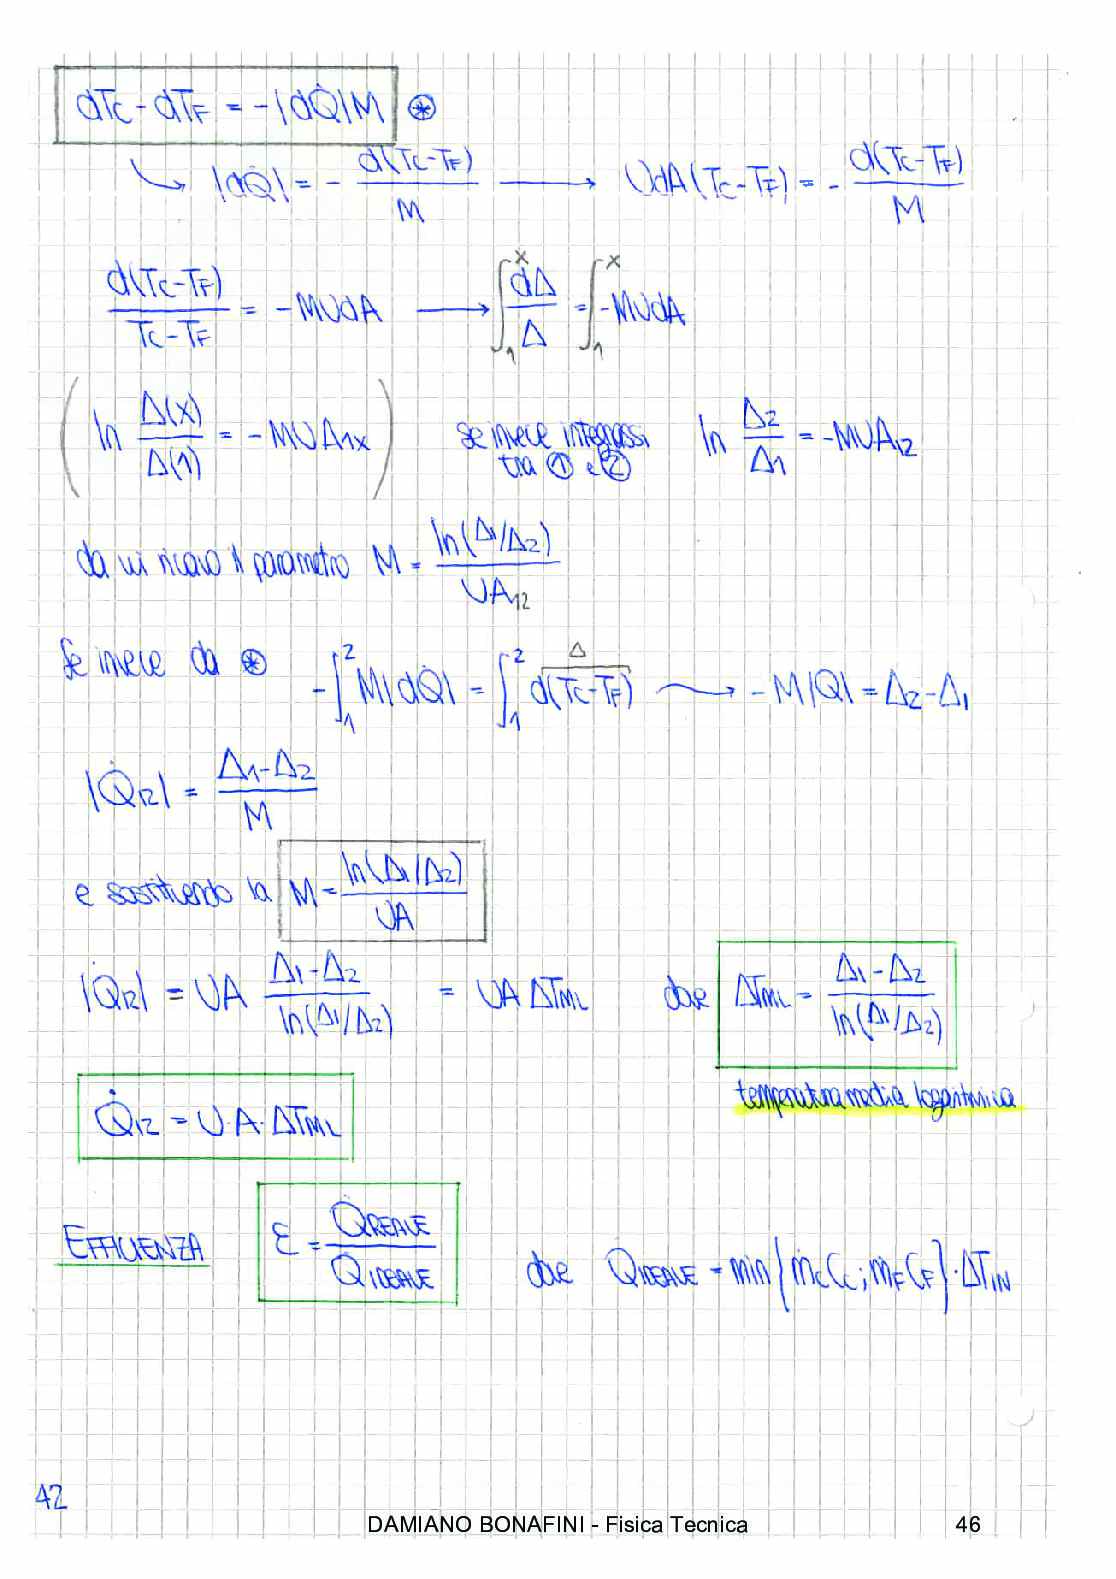 dTc - dTF = -|dQ̇|M ⊛
↳ |dQ̇| = - d(Tc-TF)/M → UdA(Tc-TF) = - d(Tc-TF)/M
d(Tc-TF)/(Tc-TF) = -MUdA → ∫₁ˣ dΔ/Δ = ∫₁ˣ -MUdA
( ln Δ(x)/Δ(1) = -MUA1x ) se invece integrassi tra ① e ② ln Δ2/Δ1 = -MUA12
da cui ricavo il parametro M = ln(Δ1/Δ2)/UA12
Se invece da ⊛ -∫₁² M|dQ̇| = ∫₁² d(Tc-TF) Δ → -M|Q̇| = Δ2-Δ1
|Q̇12| = (Δ1-Δ2)/M
e sostituendo la M = ln(Δ1/Δ2)/UA
|Q̇12| = UA (Δ1-Δ2)/ln(Δ1/Δ2) = UA ΔTML dove ΔTML = (Δ1-Δ2)/ln(Δ1/Δ2)
temperatura media logaritmica
Q̇12 = U·A·ΔTML
EFFICIENZA ε = Q̇REALE/Q̇IDEALE dove Q̇IDEALE = min{ṁcCc; ṁFCF}·ΔTIN
42
DAMIANO BONAFINI - Fisica Tecnica 46